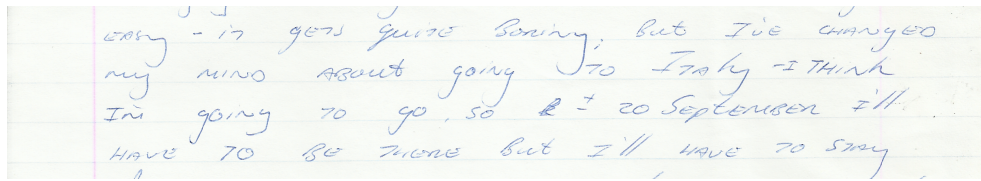 easy - it gets quite boring, but I've changed
my mind about going to Italy - I think
I'm going to go, so ± 20 September I'll
have to be there but I'll have to stay